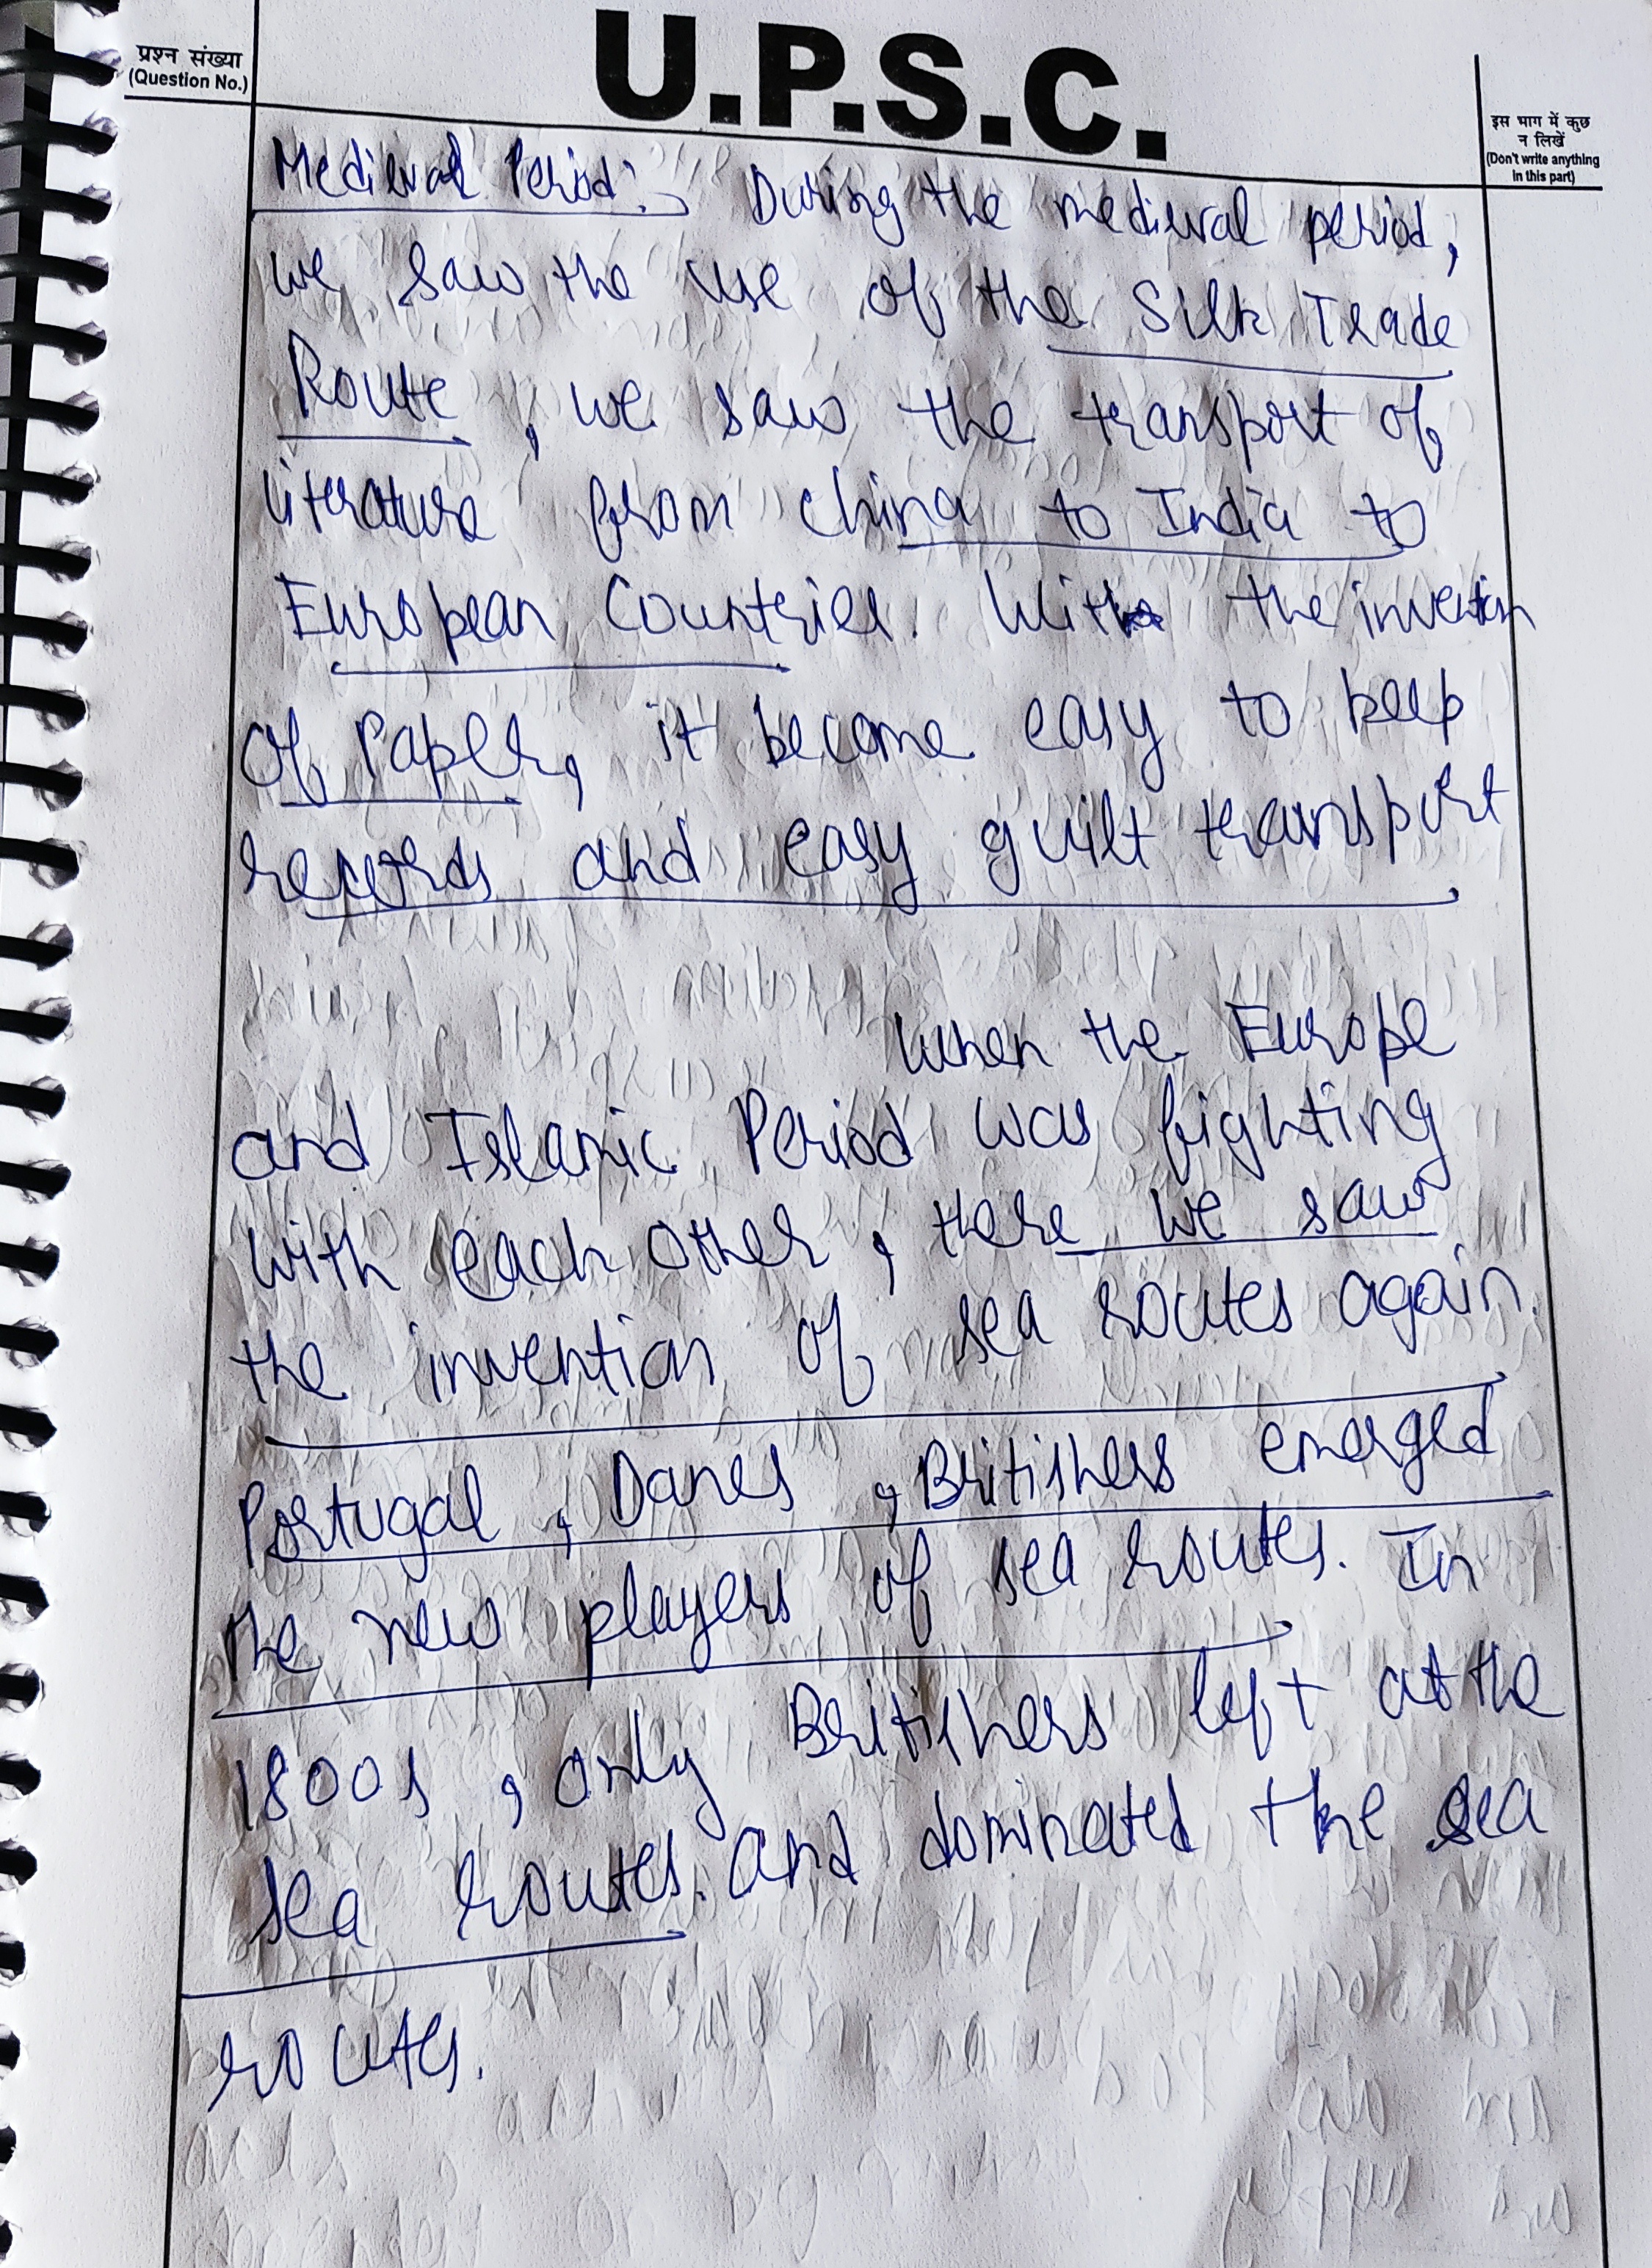 U.P.S.C.
प्रश्न संख्या
(Question No.)
इस भाग में कुछ
न लिखें
(Don't write anything
in this part)
Medieval Period:- During the medieval period,
we saw the use of the Silk Trade
Route, we saw the transport of
literature from China to India to
European Countries. With the invention
of Paper, it become easy to keep
records and easy guilt transport
When the Europe
and Islamic Period was fighting
with each other, there we saw
the invention of sea routes again.
Portugal, Danes, Britishers emerged
the new players of sea routes. In
1800s, only Britishers left at the
sea routes. and dominated the sea
routes.